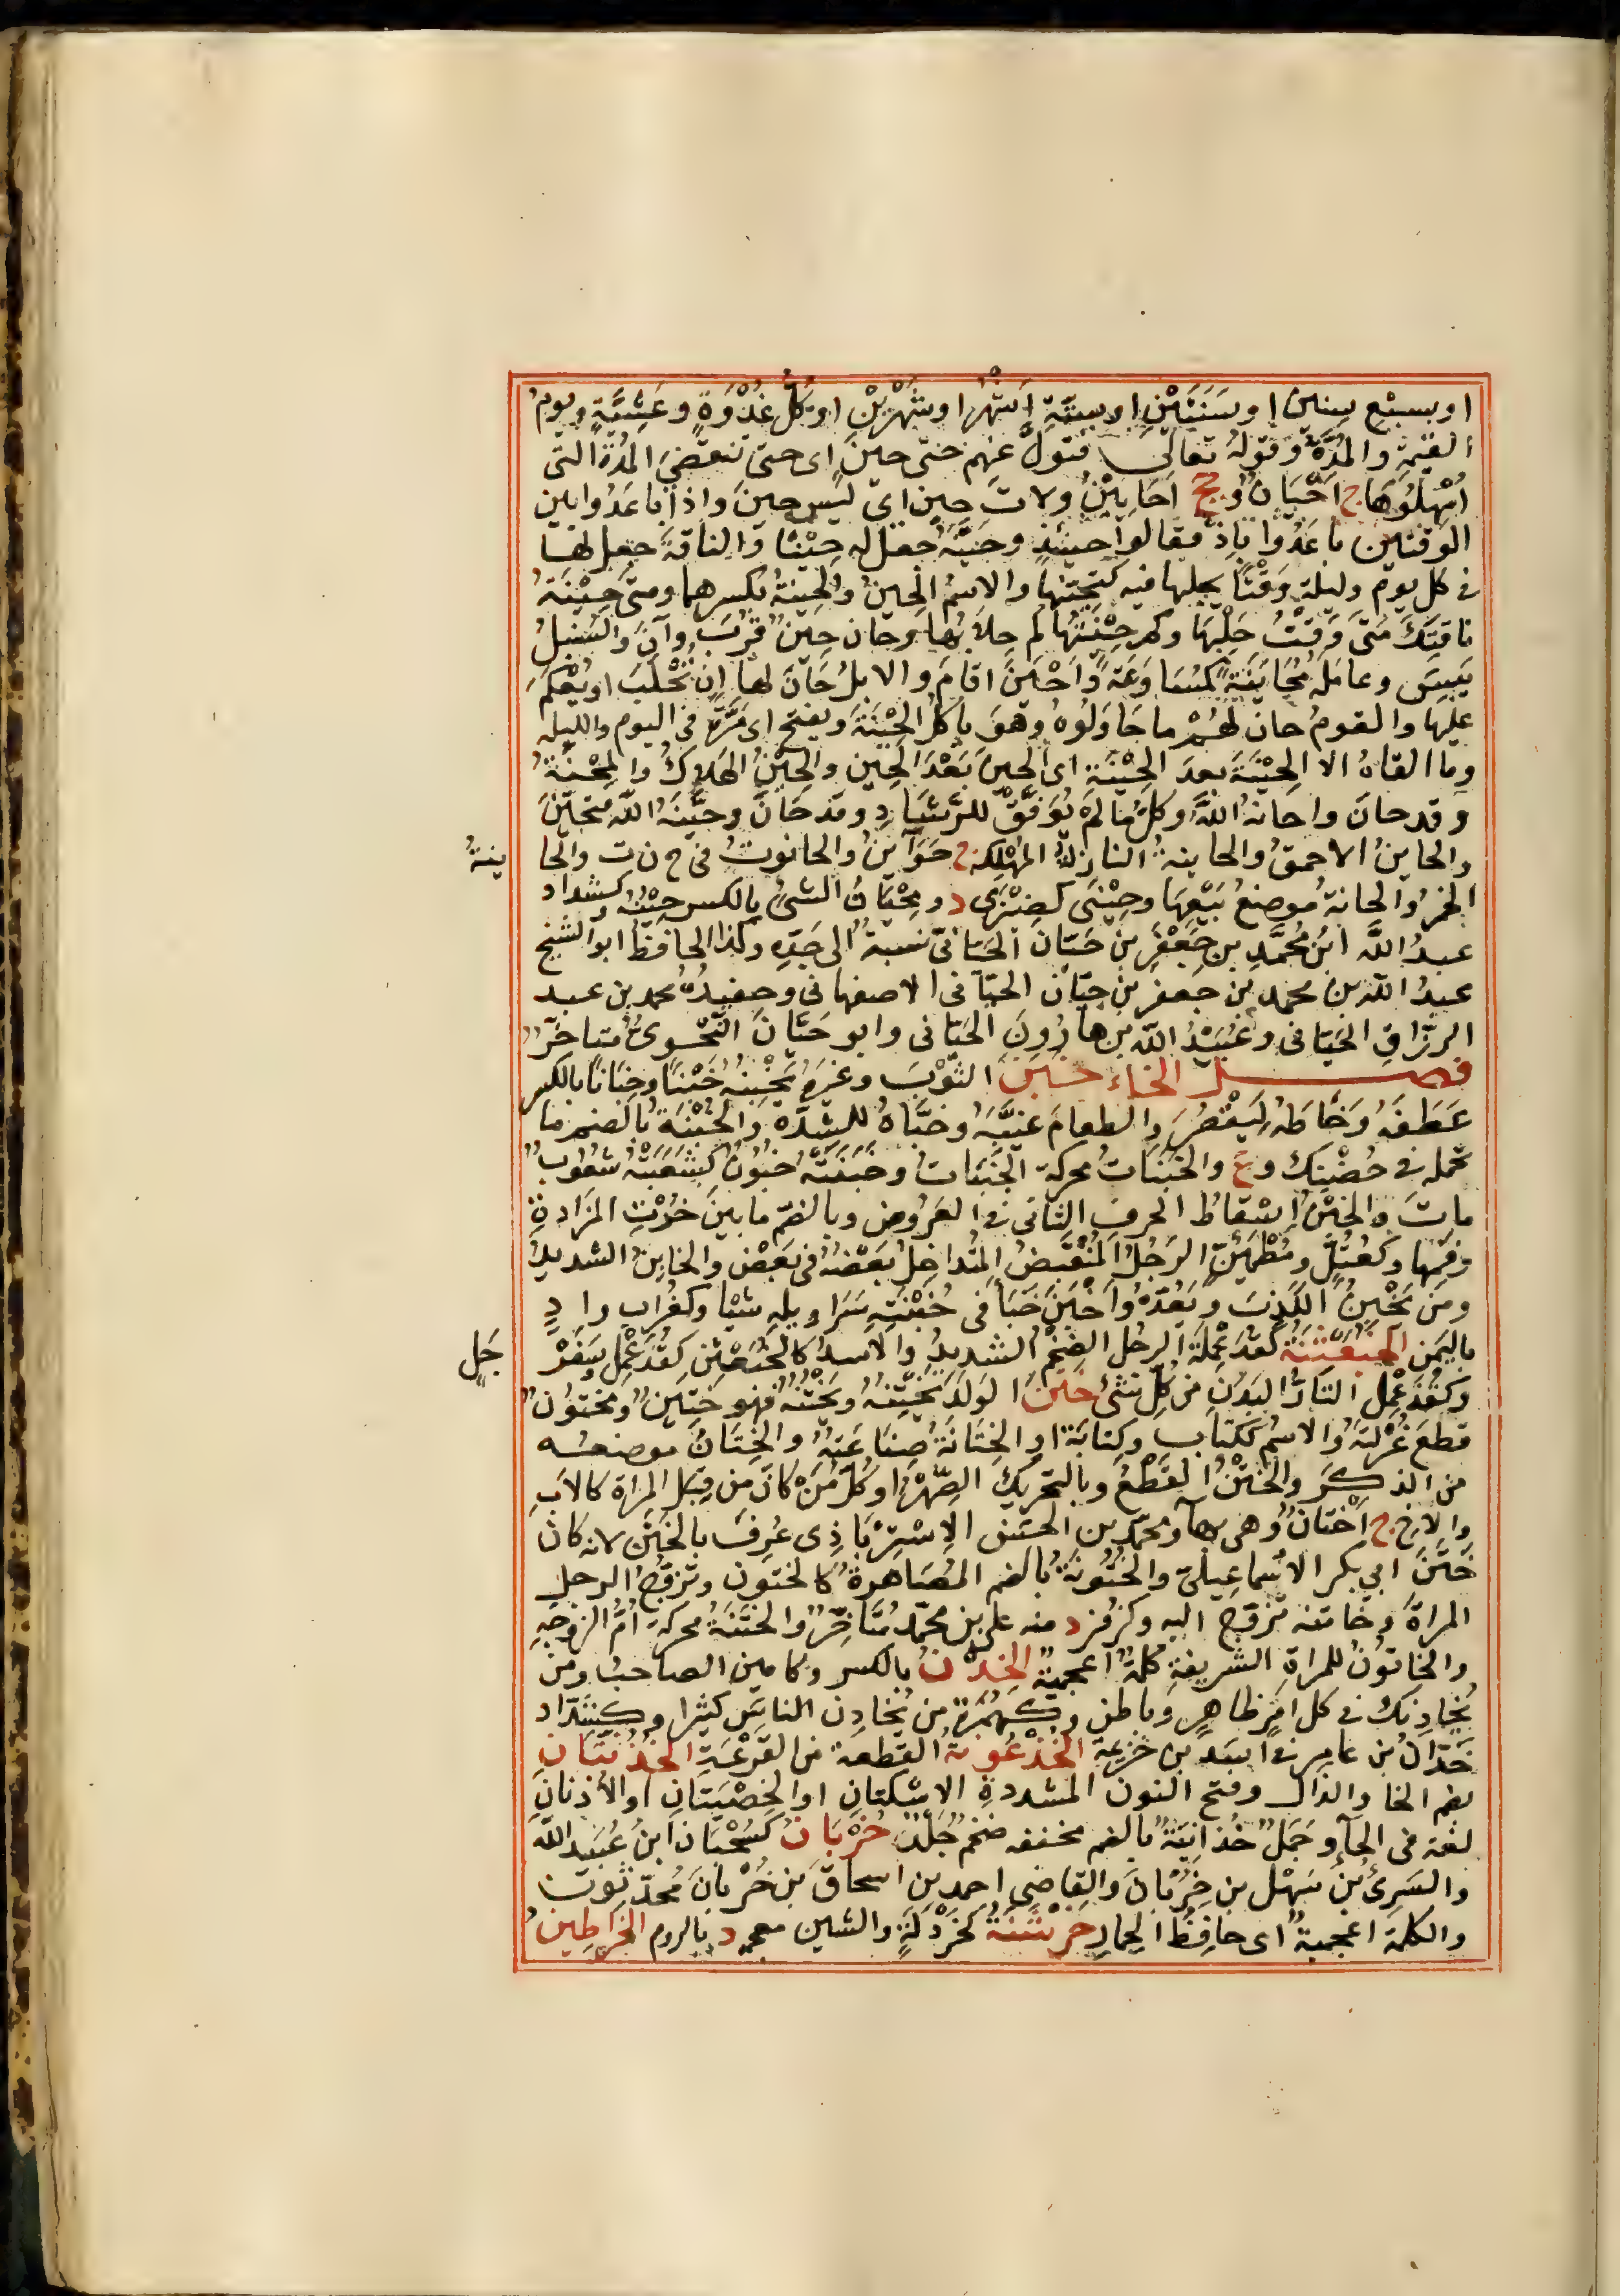 او بسبع سنين او سَنَتَيْنِ او بستّةِ اَشْهُرٍ او شَهْرَيْنِ او كُلُّ غُدْوَةٍ وعَشِيَّةٍ ويومُ
القيمة والمُدَّةُ وقولهُ تعالى فتولَّ عنهم حتى حينٍ اى حتى تنقضىَ المُدَّةُ التى
اُمْهِلُوهَا ج اَحْيَانٌ وجج اَحَايِيْنُ ولاتَ حِينٍ اى ليس حينَ واذا باعَدُوا بين
الوقتين باعَدُوا بإِذْ فقالوا حينئذٍ وحَيَّنَهُ جعل له حِيْنًا والناقةَ جعل لها
فى كل يوم وليلة وَقْتًا يحلبها فيه كتحيّنها والاسمُ الحِينُ والحِينةُ بكسرهما ومتى حِيْنَةُ
ناقتِكَ مَتى وَقْتُ حَلْبِهَا وكم حِيْنَتُها كم حِلابُها وحان حِينٌ قَرُبَ وآنَ والسُنبلُ
يَبِسَ وعامَلهُ مُحَايَنَةً كمُسَاوَعَةً وَاَحْيَنَ اقامَ والابلُ حَانَ لها ان تُحْلَبَ او يُعْكَمَ
عليها والقومُ حان لهُمْ ما حَاوَلُوهُ وهو ياكلُ الحِيْنَةَ ويفتح اى مَرَّةً فى اليوم والليلهِ
وما القاهُ الا الحِيْنَةَ بعدَ الحِيْنَةِ اى الحِينَ بَعْدَ الحِينِ والحَيْنُ الهَلاكُ والمِحْنَةُ
وقد حانَ واحانهُ اللهُ وكلُّ مَا لمْ يُوَفَّقْ للرَّشَادِ وقد حَانَ وحَيَّنَهُ اللهُ فتحيَّنَ
والحاينُ الاحمقُ والحاينةُ النازلةُ المُهْلِكهُ ج حَوَاينُ والحانوتُ فى ح ن ت والحا نيةُ
الخمرُ والحانةُ موضعُ بَيْعِهَا وحِيْنَى كضِيْزَى د ومِحْيَانُ الشئِ بالكسرِ حِيْنُه وكشداد
عبدُ الله ابنُ مُحمَّدِ بنِ جَعْفَرِ بن حَيّانَ الحَيّانىُّ نسبةٌ الى جَدِّهِ وكذا الحافظُ ابو الشيخ
عبدُ الله بن محمد بن جعفر بن حيّان الحيّانى الاصفهانى وحفيدُهُ محمد بن عبد
الرزّاقِ الحَيّانى وعُبَيْدُ الله بن هارُونَ الحَيّانى وابو حَيَّانَ النَّحْوىُّ مُتاخّرٌ
فصل الخاء خَبَنَ الثَوْبَ وغيرَهُ يَخْبِنُهُ خَبْنًا وخِبَانًا بالكسرِ
عَطَفَهُ وَخَاطَهُ لِيَقْصُرَ والطعامَ غَيَّبَهُ وخَبَّاهُ للشِدَّةِ والخُبْنَةُ بالضم ما
تحمله فى حُضْنِكَ وع والخَبَنَاتُ محركة الخَنَباتُ وخَبَنَتْهُ خَبُوْنُ كشَعَبَتْهُ شَعُوْبُ
ماتَ والخَبْنُ اِسْقَاطُ الحرفِ الثانى فى العَرُوضِ وبالضمّ ما بينَ خُرْتِ المزَادةِ
وفَمِها وكعُتُلٍّ ومُطْمَئِنٍّ الرَجُلُ المُنْقَبِضُ المُتداخِلُ بَعْضُهُ فى بَعْضٍ والخابنُ الشديدُ
ومن يَخْبِنُ الكَذِبَ ويُعِدُّهُ وَاَخْبَنَ خَبَأَ فى خُبْنَةِ سَرَاويلِهِ شَيْأ وكغُرابٍ وادٍ
باليَمن الخُبَعْثِنَةُ كقُذَعْمِلَة الرجُل الضخْمُ الشديدُ والاسدُ كالخُبَعْثِنِ كقُذَعْمِلٍ وسَفَرْ جَلٍ
وكقُذَعْمِلٍ التارُّ البَدَنِ من كلِّ شئٍ خَتَنَ الوَلَدَ يَخْتِنُهُ ويَخْتُنُهُ فهو خَتِينٌ ومَختُونٌ
قطعَ غُرْلَتَهُ والاسْمُ ككِتابٍ وكِتابةٍ او الخِتَانَةُ صِنَاعَتهُ والخِتَانُ موضعه
من الذكَرِ والخَتْنُ القَطْعُ وبالتحريكِ الصِّهْرُ او كُلُّ مَنْ كانَ من قِبَلِ المراة كالابِ
والاخِ ج اَخْتَانٌ وهى بهآء ومحمّد بن الحسن الاِسْتِرَابَاذِى عُرِفَ بالخَتَنِ لانه كانَ
خَتَنَ ابى بكر الاسْماعيلىّ والخُتُونَةُ بالضم المُصَاهرةُ كالخُتون وتزوّجُ الرجل
المراةَ وخاتنه تزوّج اليه وكزُفَرَ د منه علىُّ بن محمّدٍ مُتَاخِّرٌ والخَتَنَةُ محركة اُمُّ الزوجهِ
والخَاتُونُ للمراةِ الشريفةِ كلمةٌ اعجميةٌ الخِدْنُ بالكسر وكامينٍ الصاحبُ ومن
يُخَادِنُكَ فى كل امرٍ ظاهرٍ وباطنٍ وكهُمَزَةٍ من يُخادِن الناسَ كثيرا وكشدّاد
خَدّانُ بن عامرٍ فى اَسَدِ بن خزيمة الخُذْعُونةُ القطعة من القَرْعَةِ الخُذُنَّتَانِ
بضم الخا والذال وفتح النون المشددةِ الاِسْكتانِ او الخصْيَتَانِ او الاُذنانِ
لغة فى الحآء وجَمَلٌ خُذَانيةٌ بالضم مخففه ضخْم جَلْدٌ خُرْبَانُ كسُحْبَانَ ابنُ عُبَيد الله
والسَرِىُّ بنُ سَهْل بن خُرْبَانَ والقاضى احمد بن اسحاقَ بن خُرْبَانَ مُحدّثون
والكلمة اعْجميةٌ اى حافِظُ الحمارِ خَرْشَنَةُ كخَرْدَلَةٍ والشين معجمه د بالروم الخَرَاطِينُ